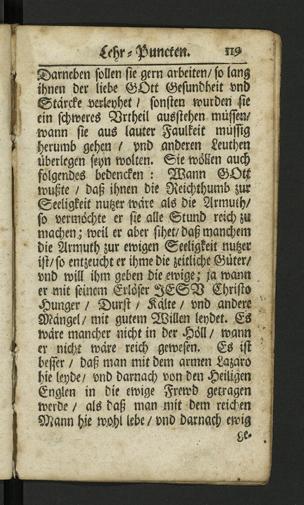 Lehr-Puncten. 119
Darneben sollen sie gern arbeiten/ so lang
ihnen der liebe GOtt Gesundheit vnd
Stärcke verleyhet / sonsten wurden sie
ein schweres Vrtheil ausstehen müssen/
wann sie aus lauter Faulkeit müssig
herumb gehen / vnd anderen Leuthen
überlegen seyn wolten. Sie wöllen auch
folgendes bedencken : Wann GOtt
wußte / daß ihnen die Reichthumb zur
Seeligkeit nutzer wäre als die Armuth/
so vermöchte er sie alle Stund reich zu
machen; weil er aber sihet/ daß manchem
die Armuth zur ewigen Seeligkeit nutzer
ist/ so entzeucht er ihme die zeitliche Güter/
vnd will ihm geben die ewige; ja wann
er mit seinem Erlöser JESV Christo
Hunger / Durst / Kälte / vnd andere
Mängel/ mit gutem Willen leydet. Es
wäre mancher nicht in der Höll / wann
er nicht wäre reich gewesen. Es ist
besser / daß man mit dem armen Lazaro
hie leyde / vnd darnach von den Heiligen
Englen in die ewige Frewd getragen
werde / als daß man mit dem reichen
Mann hie wohl lebe / vnd darnach ewig
ge-